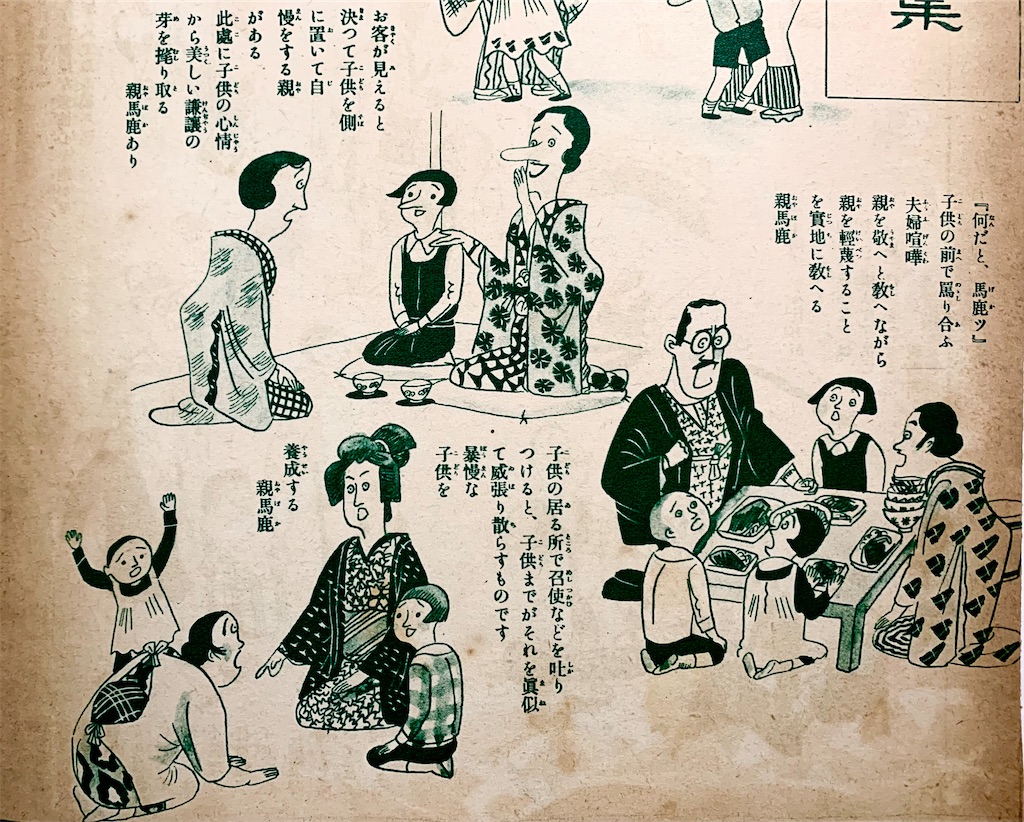 『何だと、馬鹿ッ』
子供の前で罵り合ふ
夫婦喧嘩
親を敬へと教へながら
親を輕蔑すること
を實地に教へる
親馬鹿
お客が見えると
決つて子供を側
に置いて自
慢をする親
がある
此處に子供の心情
から美しい謙讓の
芽を毟り取る
親馬鹿あり
子供の居る所で召使などを叱り
つけると、子供までがそれを眞似
て威張り散らすものです
暴慢な
子供を
養成する
親馬鹿